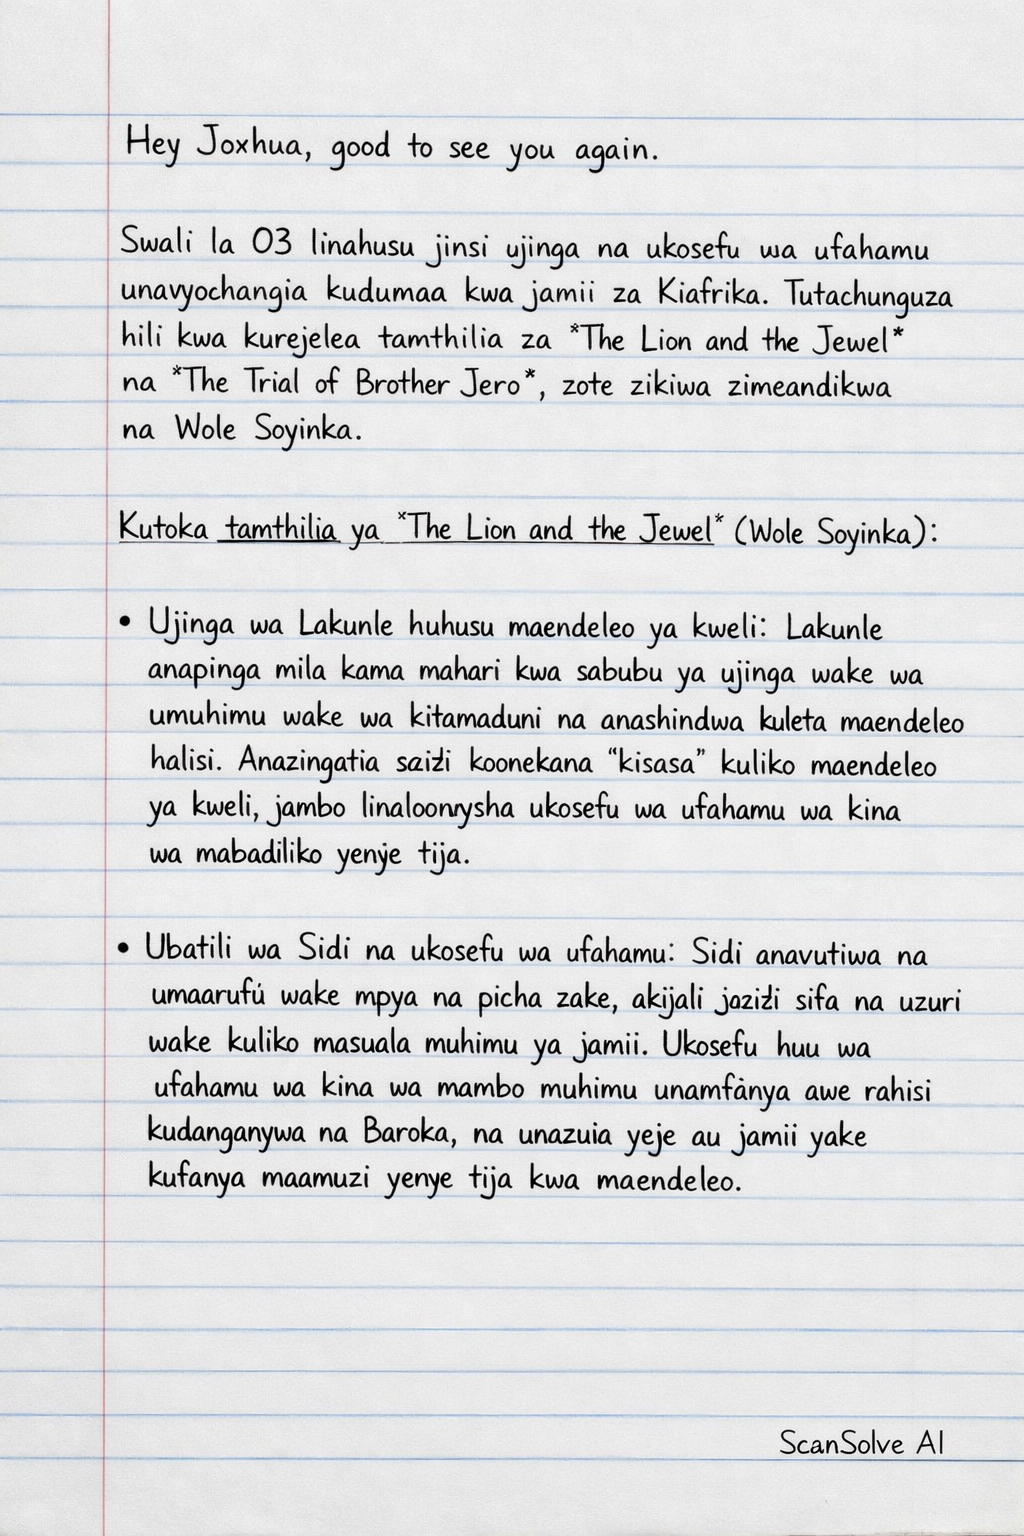 Hey Joxhua, good to see you again.
Swali la 03 linahusu jinsi ujinga na ukosefu wa ufahamu
unavyochangia kudumaa kwa jamii za Kiafrika. Tutachunguza
hili kwa kurejelea tamthilia za *The Lion and the Jewel*
na *The Trial of Brother Jero*, zote zikiwa zimeandikwa
na Wole Soyinka.
Kutoka tamthilia ya *The Lion and the Jewel* (Wole Soyinka):
• Ujinga wa Lakunle huhusu maendeleo ya kweli: Lakunle
anapinga mila kama mahari kwa sabubu ya ujinga wake wa
umuhimu wake wa kitamaduni na anashindwa kuleta maendeleo
halisi. Anazingatia saiżi koonekana “kisasa” kuliko maendeleo
ya kweli, jambo linaloonrysha ukosefu wa ufahamu wa kina
wa mabadiliko yenye tija.
• Ubatili wa Sidi na ukosefu wa ufahamu: Sidi anavutiwa na
umaarufú wake mpya na picha zake, akijali jaziżi sifa na uzuri
wake kuliko masuala muhimu ya jamii. Ukosefu huu wa
ufahamu wa kina wa mambo muhimu unamfànya awe rahisi
kudanganywa na Baroka, na unazuia yeje au jamii yake
kufanya maamuzi yenye tija kwa maendeleo.
ScanSolve AI